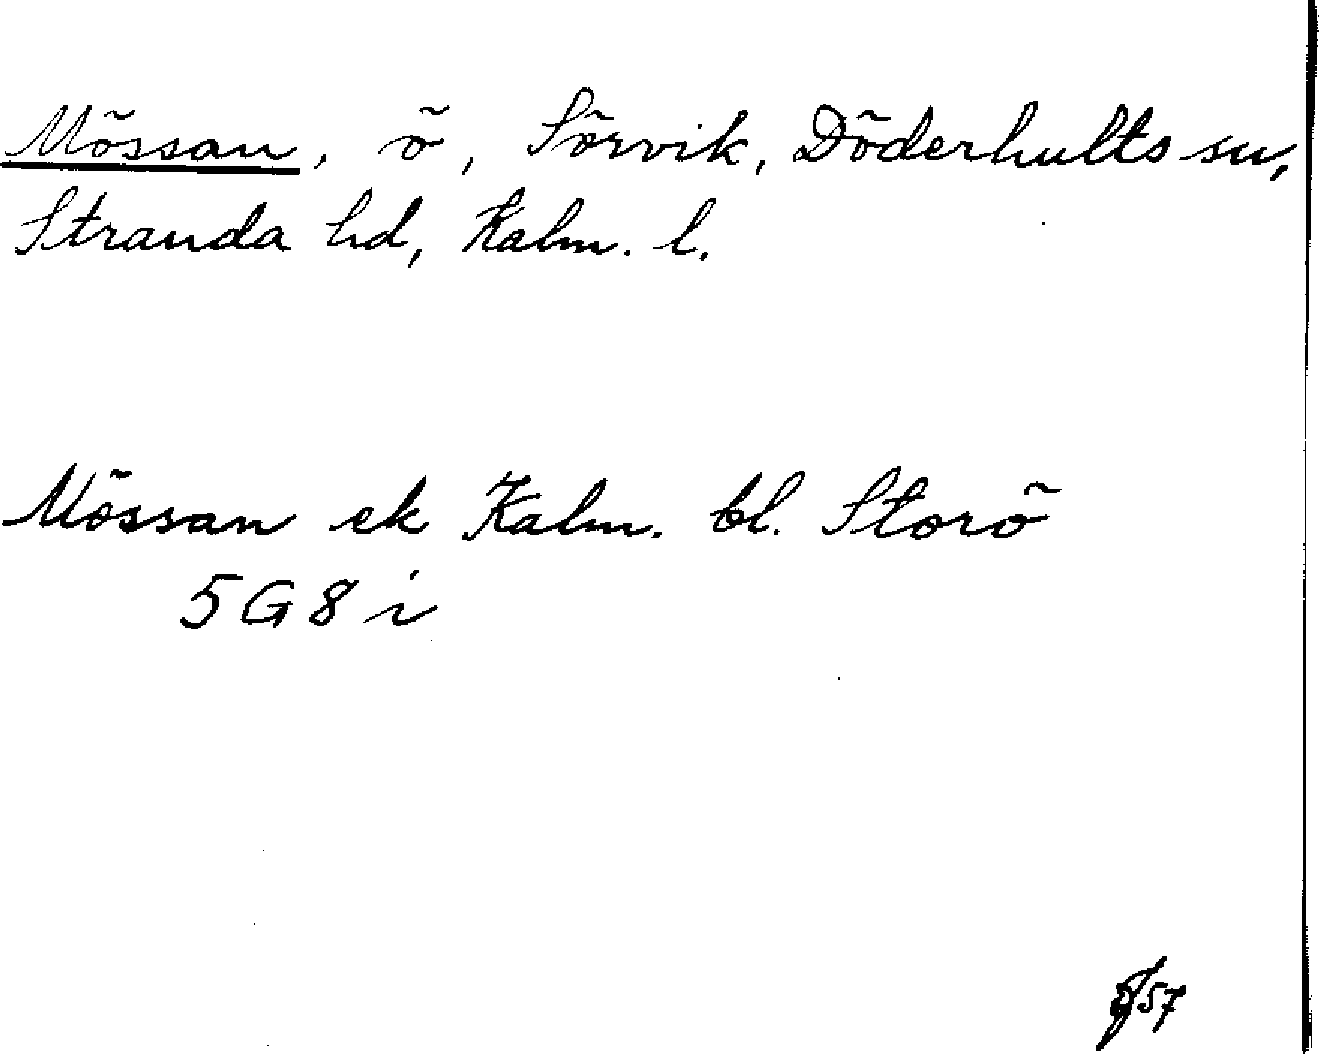 Mössan, ö, Sörvik, Döderhults sn,
Stranda hd, Kalm. l.
Mössan ek Kalm. bl. Storö
5G8i
57